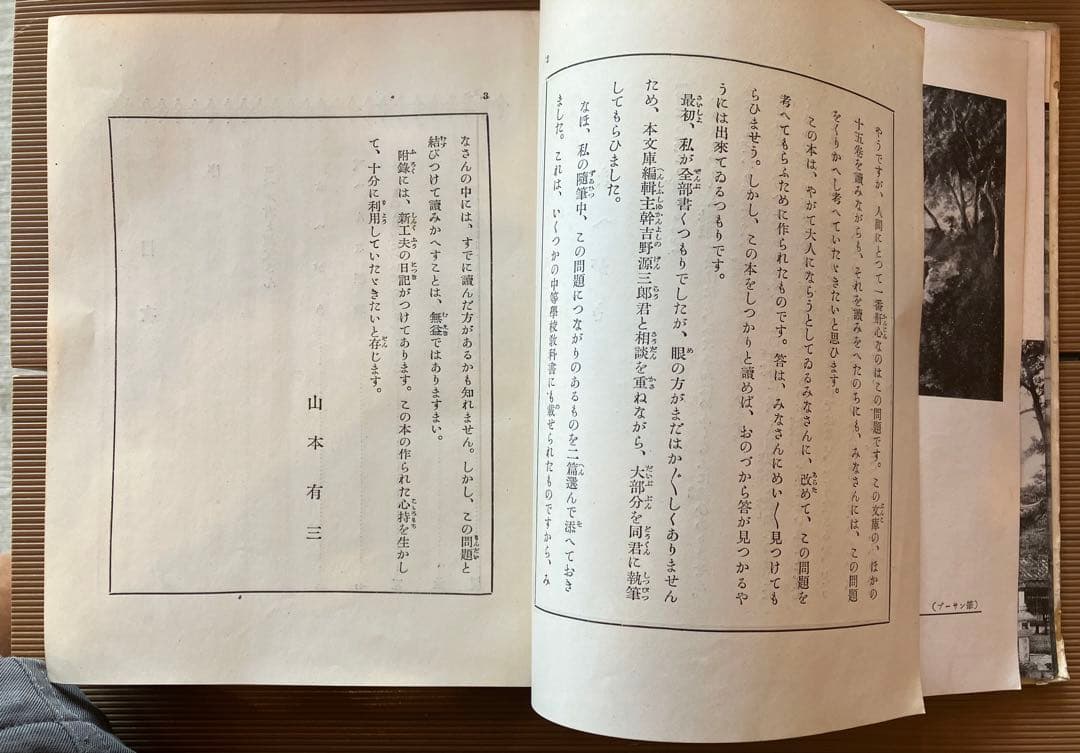 2
やうですが、人間にとつて一番肝心なのはこの問題です。この文庫の、ほかの
十五卷を讀みながらも、それを讀みをへたのちにも、みなさんには、この問題
をくりかへし考へていたゞきたいと思ひます。
この本は、やがて大人にならうとしてゐるみなさんに、改めて、この問題を
考へてもらふために作られたものです。答は、みなさんにめい〳〵見つけても
らひませう。しかし、この本をしつかりと讀めば、おのづから答が見つかるや
うには出來てゐるつもりです。
最初、私が全部書くつもりでしたが、眼の方がまだはか〴〵しくありません
ため、本文庫編輯主幹吉野源三郎君と相談を重ねながら、大部分を同君に執筆
してもらひました。
なほ、私の隨筆中、この問題につながりのあるものを二篇選んで添へておき
ました。これは、いくつかの中等學校敎科書にも載せられたものですから、み
3
なさんの中には、すでに讀んだ方があるかも知れません。しかし、この問題と
結びつけて讀みかへすことは、無益ではありますまい。
附錄には、新工夫の日記がつけてあります。この本の作られた心持を生かし
て、十分に利用していたゞきたいと存じます。
山本有三
(プーサン筆)